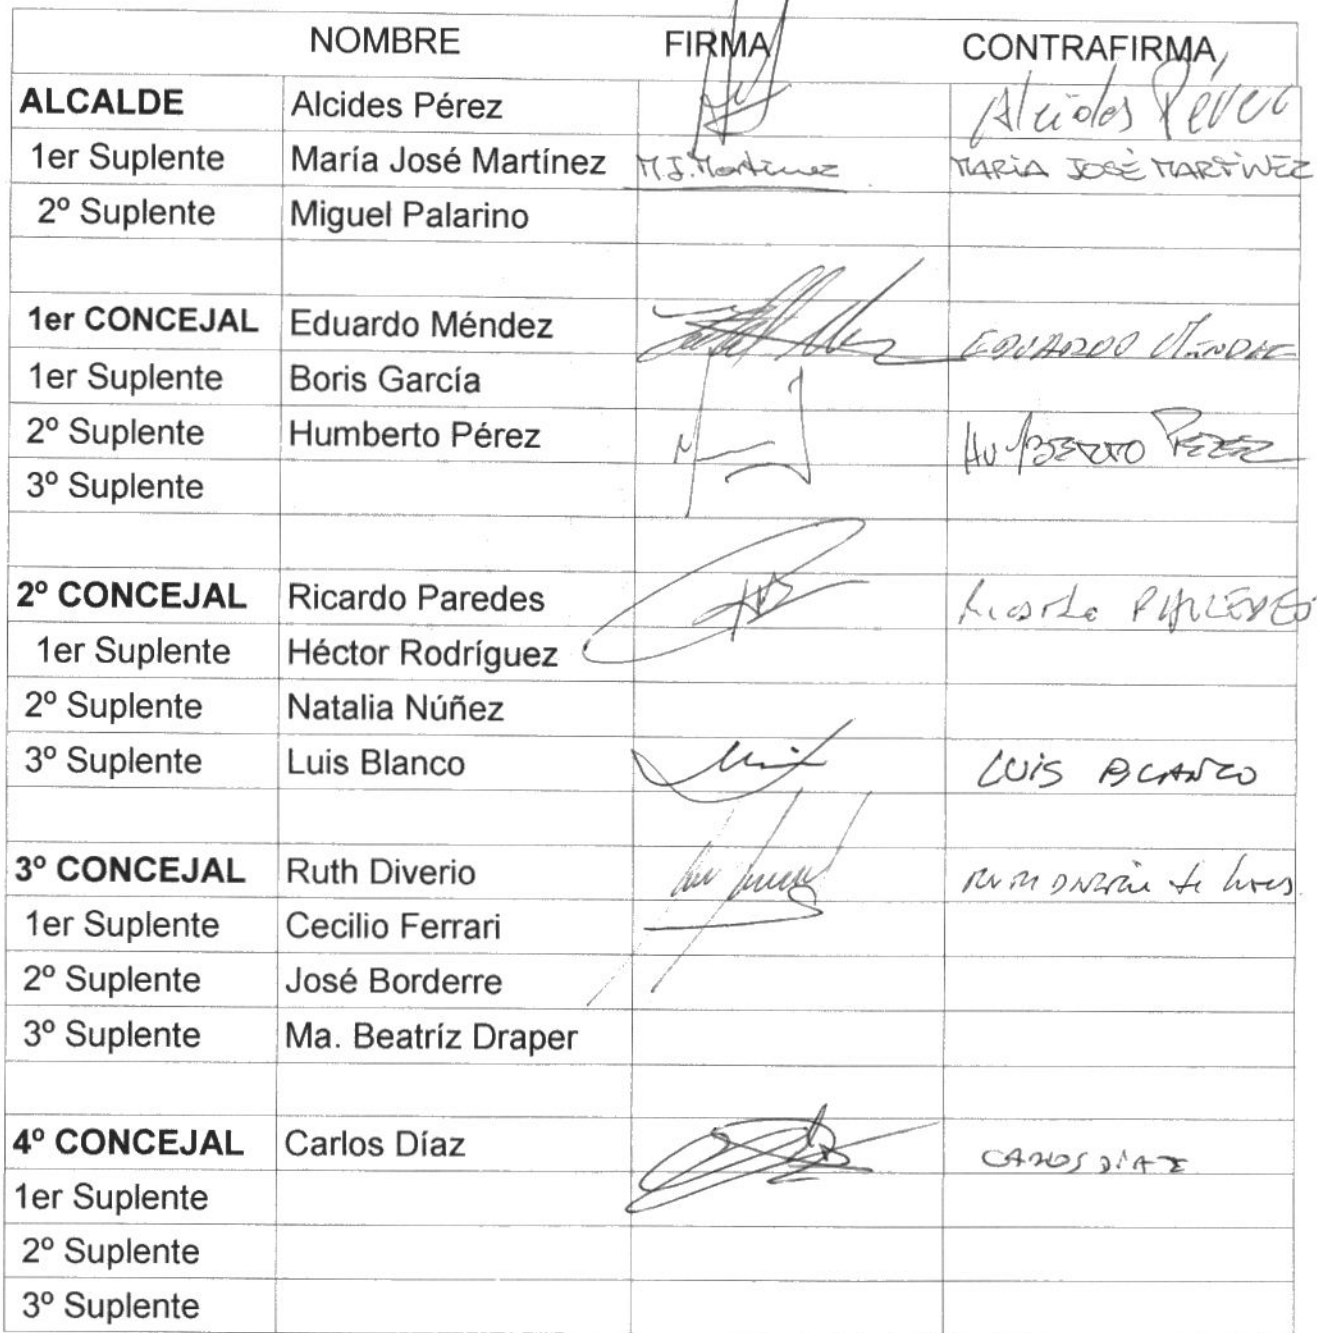 NOMBRE FIRMA CONTRAFIRMA
ALCALDE Alcides Pérez Alcides Pérez
1er Suplente María José Martínez M.J. Martínez MARÍA JOSÉ MARTÍNEZ
2º Suplente Miguel Palarino
1er CONCEJAL Eduardo Méndez EDUARDO MÉNDEZ
1er Suplente Boris García
2º Suplente Humberto Pérez HUMBERTO PEREZ
3º Suplente
2º CONCEJAL Ricardo Paredes Ricardo PAREDES
1er Suplente Héctor Rodríguez
2º Suplente Natalia Núñez
3º Suplente Luis Blanco LUIS BLANCO
3º CONCEJAL Ruth Diverio
1er Suplente Cecilio Ferrari
2º Suplente José Borderre
3º Suplente Ma. Beatríz Draper
4º CONCEJAL Carlos Díaz CARLOS DÍAZ
1er Suplente
2º Suplente
3º Suplente